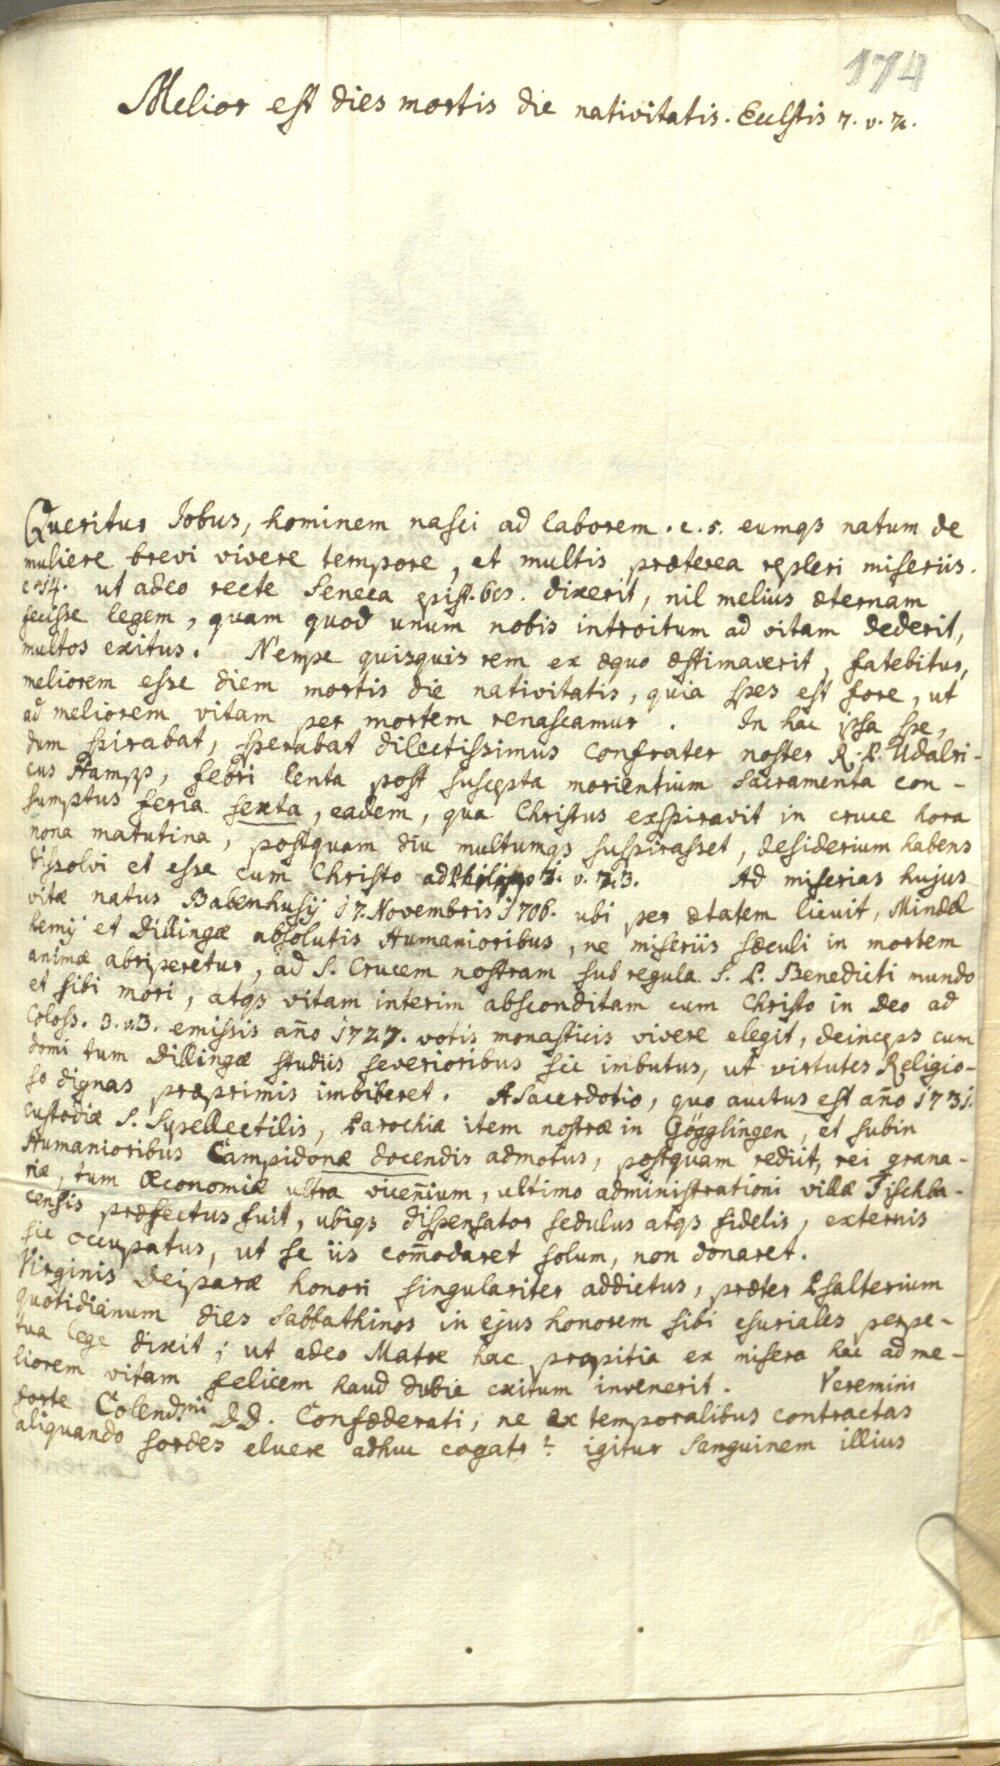 174
Melior est dies mortis die nativitatis. Ecclstis 7. v. 2.
Queritur Jobus, hominem nasci ad laborem. c. 5. eumqs natum de
muliere brevi vivere tempore, et multis præterea repleri miseriis.
c. 14. ut adeo recte Seneca epist. dixerit, nil melius æternam
fecisse legem, quam quod unum nobis introitum ad vitam dederit,
multos exitus. Nempe quisquis rem ex æquo æstimaverit, fatebitur,
meliorem esse diem mortis die nativitatis, quia spes est fore, ut
ad meliorem vitam per mortem renascamur. In hac ipsa spe,
dum spirabat, sperabat dilectissimus confrater noster R. P. Udalri-
cus Hampp, febri lenta post suscepta morientium Sacramenta con-
sumptus feria sexta, eadem, qua Christus exspiravit in cruce hora
nona matutina, postquam diu multumqs suspirasset, desiderium habens
dissolvi et esse cum Christo ad Philipp v. 23. Ad miserias hujus
vitæ natus Babenhusij 17. Novembris 1706. ubi per ætatem licuit, Mindel
hemij et Dillingæ absolutis Humanioribus, ne miseriis sæculi in mortem
animæ abriperetur, ad S. Crucem nostram sub regula S. P. Benedicti mundo
et sibi mori, atqs vitam interim absconditam cum Christo in Deo ad
Coloss. 3. v. 3. emissis año 1727. votis monasticis vivere elegit, deinceps cum
domi tum Dillingæ studiis severioribus sic imbutus, ut virtutes Religio-
so dignas præprimis imbiberet. A Sacerdotio, quo auctus est año 1731.
custodiæ S. Supellectilis, Parochiæ item nostræ in Gögglingen, et subin
Humanioribus Campidonæ docendis admotus, postquam rediit, rei grana-
riæ, tum Œconomiæ ultra viceñium, ultimo administrationi villæ Fischba-
censis præfectus fuit, ubiqs dispensator sedulus atqs fidelis, externis
sic occupatus, ut se iis com̄odaret solum, non donaret.
Virginis Deiparæ honori singulariter addictus, præter Psalterium
quotidianum dies Sabbathinos in ejus honorem sibi esuriales perpe-
tua lege dixit; ut adeo Matre hac propitia ex misera hac ad me-
liorem vitam felicem haud dubie exitum invenerit. Veremini
forte Colend.mi DD. Confœderati, ne ex temporalibus contractas
aliquando sordes eluere adhuc cogatr? igitur Sanguinem illius